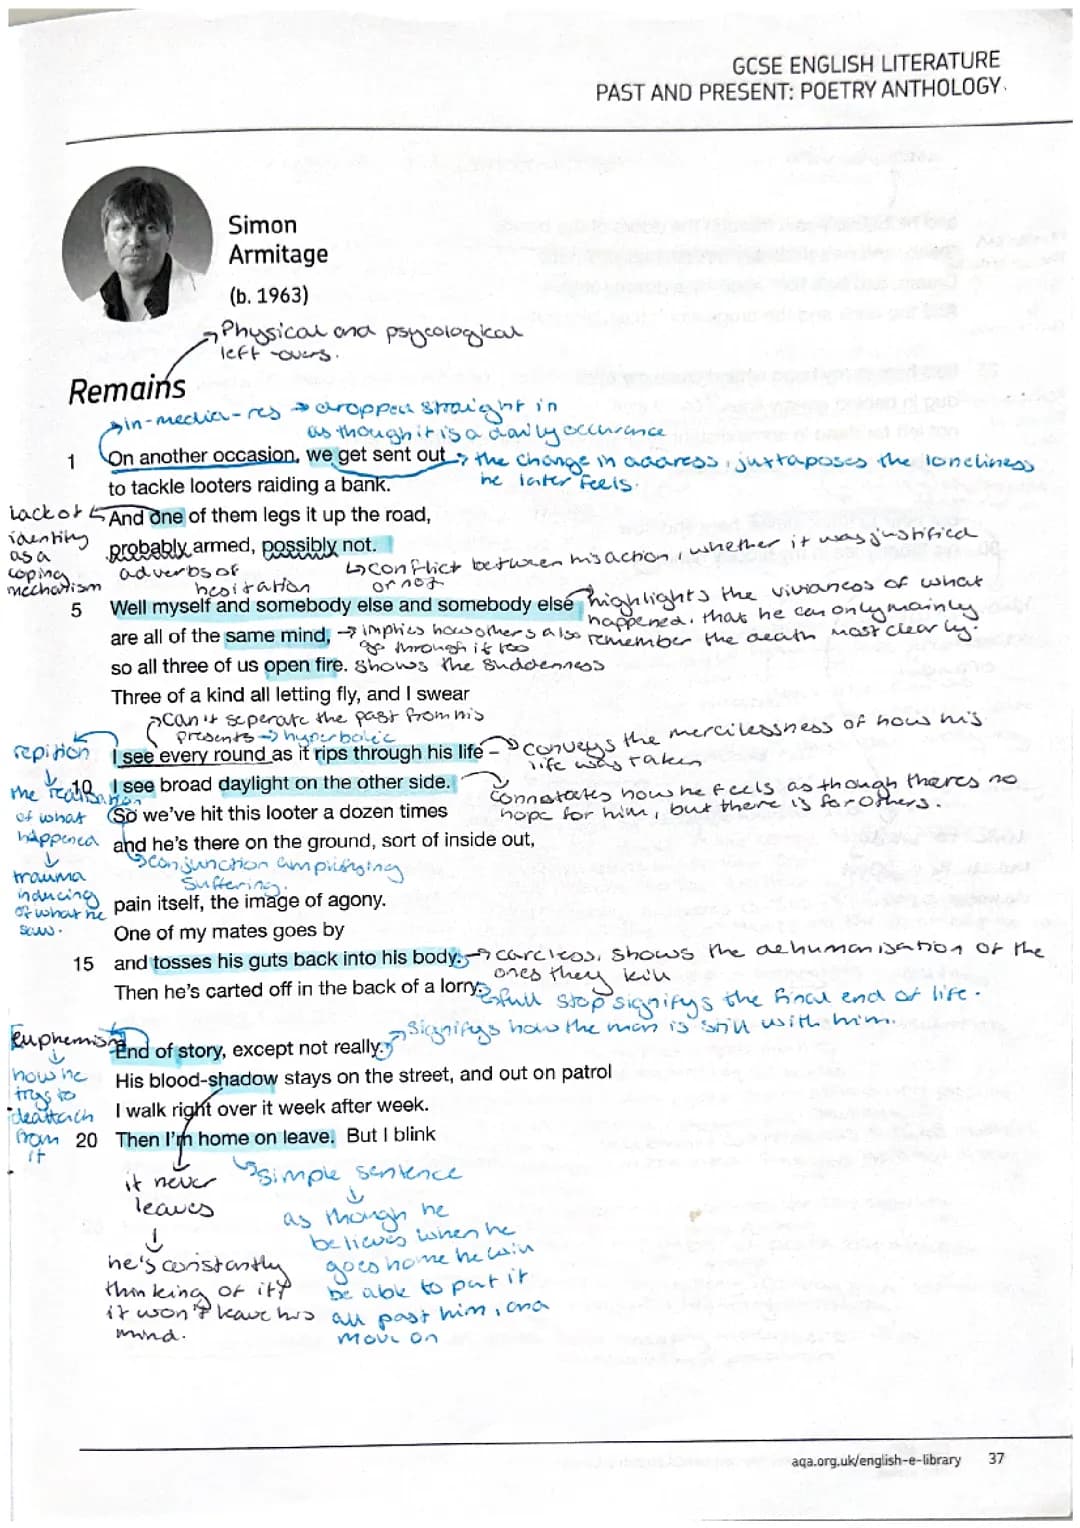 GCSE ENGLISH LITERATURE
PAST AND PRESENT: POETRY ANTHOLOGY
Simon
Armitage
(b. 1963)
Physical and psycological
left-overs.
Remains
in-media-res → dropped straight in
as though it is a daily occurance
1 On another occasion, we get sent out
the change in address, juxtaposes the loneliness
he later feels.
to tackle looters raiding a bank.
And one of them legs it up the road,
Lack of
identity
as a
coping
mechanism
probably armed, possibly not.
adverbs of
hesitation
conflict between his action, whether it was justified
or not
5 Well myself and somebody else and somebody else
highlights the vividness of what
happened, that he can only mainly
remember the death most clearly.
are all of the same mind,
→ implies how others also
go through it too
so all three of us open fire.
shows the suddenness
Three of a kind all letting fly, and I swear
can't seperate the past from his
presents → hyperbolic
I see every round as it rips through his life –
conveys the mercilessness of how his
life was taken
repition
the realisation
of what
happened
trauma
inducing
of what he
saw.
10 I see broad daylight on the other side.
connotates how he feels as though theres no
hope for him, but there is for others.
So we've hit this looter a dozen times
and he's there on the ground, sort of inside out,
conjunction amplifying
suffering.
pain itself, the image of agony.
One of my mates goes by
15 and tosses his guts back into his body.
→ careless, shows the dehumanisation of the
ones they kill
Then he's carted off in the back of a lorry.
full stop signifys the final end of life.
signifys how the man is still with him.
Euphemism
how he
trys to
deattach
from
it
End of story, except not really.
His blood-shadow stays on the street, and out on patrol
I walk right over it week after week.
20 Then I'm home on leave. But I blink
it never
leaves
he's constantly
thinking of it,
it won't leave his
mind.
simple sentence
as though he
believes when he
goes home he will
be able to put it
all past him, and
move on
aqa.org.uk/english-e-library 37